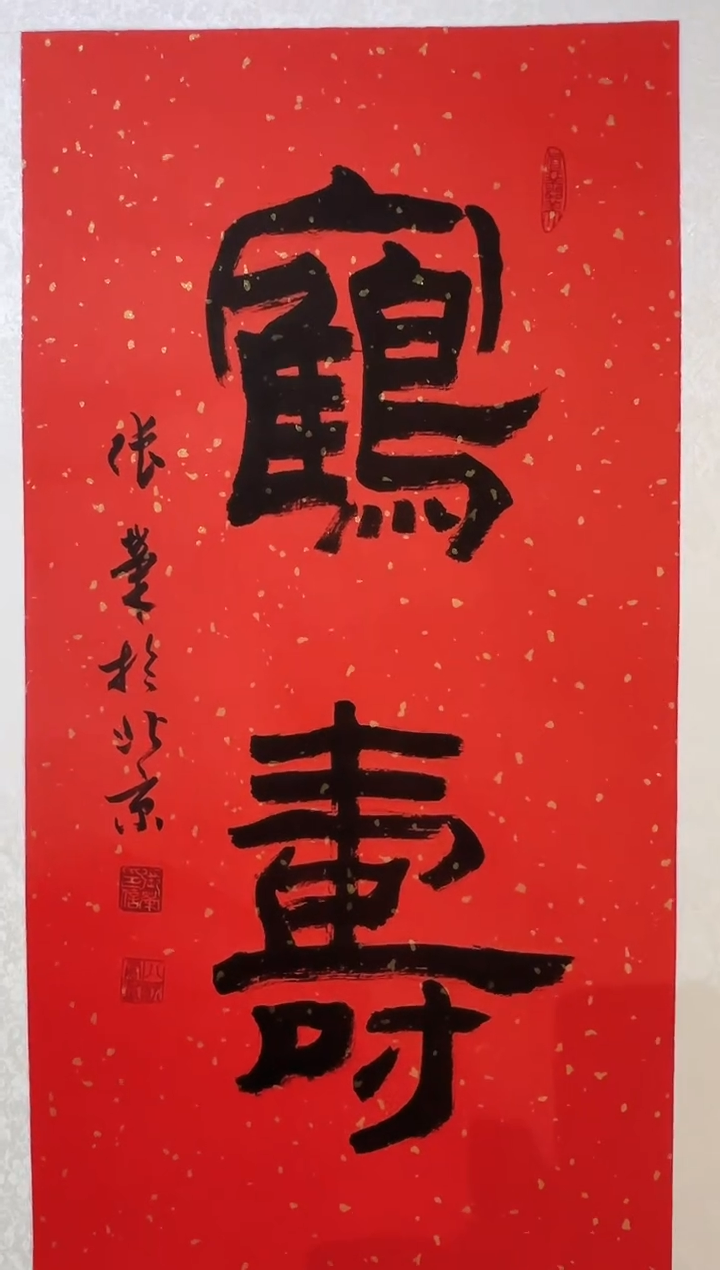 鶴壽
張於北京